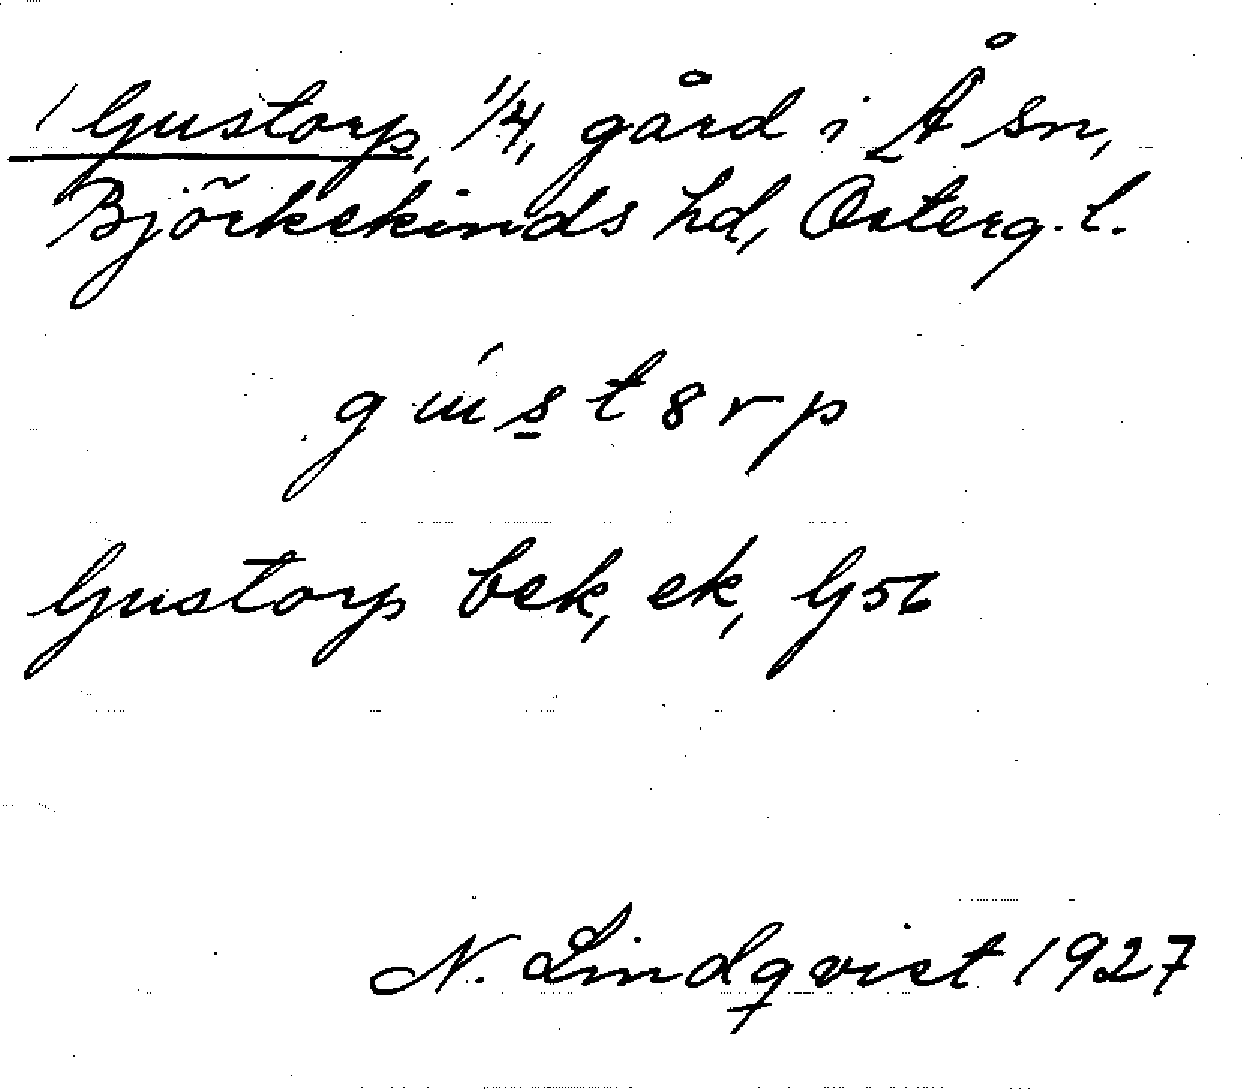 / Gustorp, 1/4, gård i Å sn,
Björkekinds hd, Österg. l.
gústɜrp
Gustorp bek, ek, G56
N. Lindqvist 1927